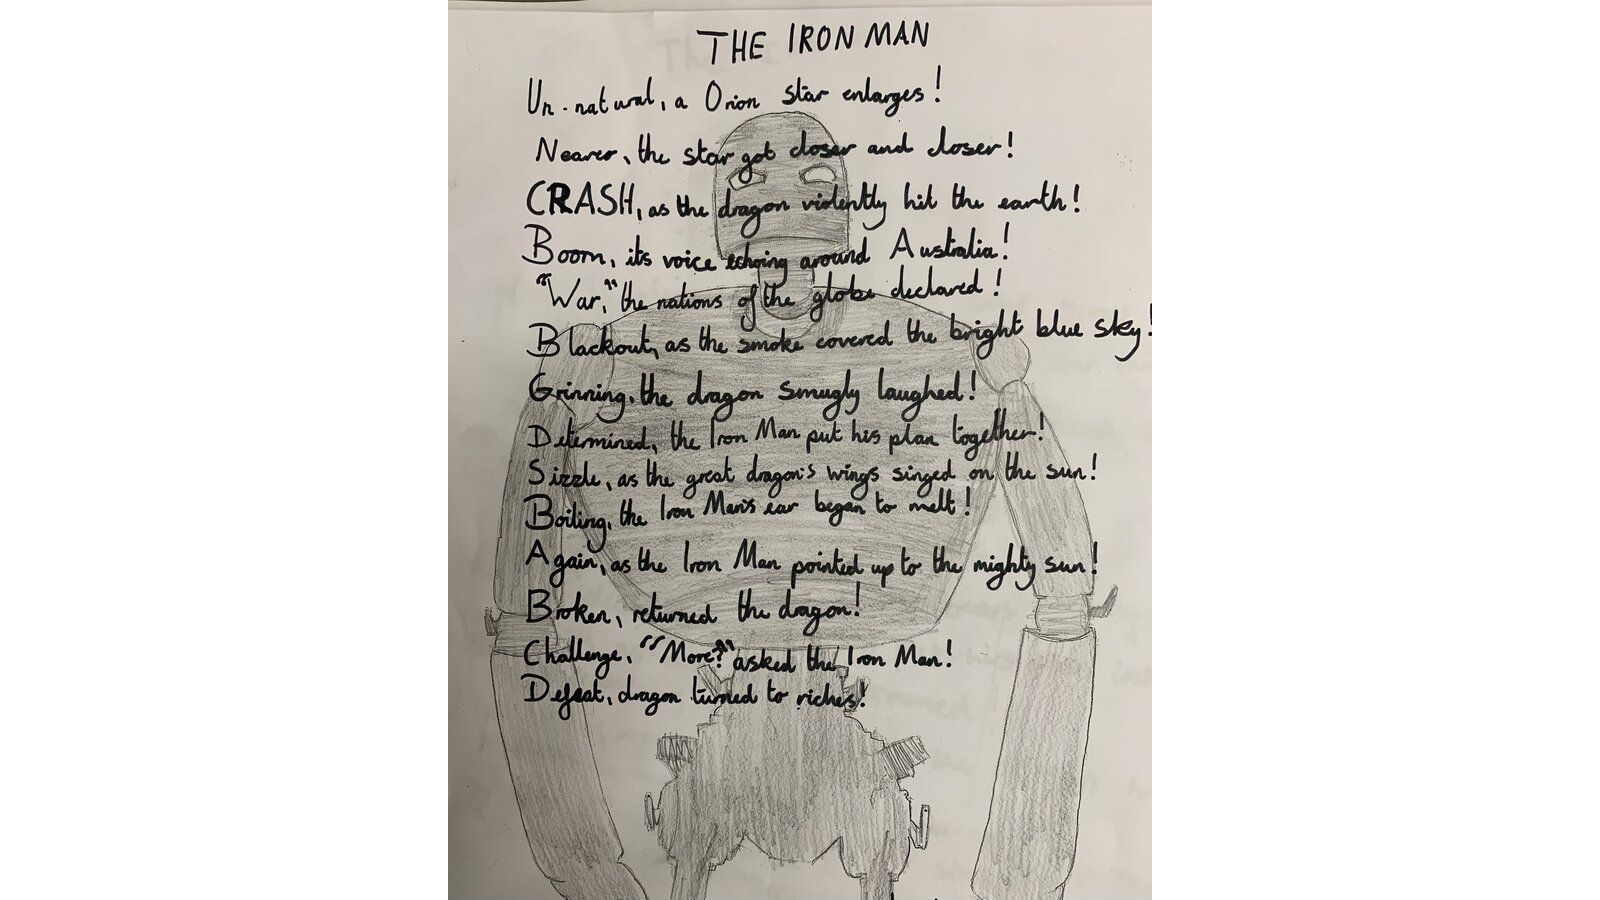 THE IRON MAN
Un-natural, a Orion star enlarges!
Nearer, the star got closer and closer!
CRASH, as the dragon violently hit the earth!
Boom, its voice echoing around Australia!
"War," the nations of the globe declared!
Blackout, as the smoke covered the bright blue sky!
Grinning, the dragon smugly laughed!
Determined, the Iron Man put his plan together!
Sizzle, as the great dragon's wings singed on the sun!
Boiling, the Iron Man's ear began to melt!
Again, as the Iron Man pointed up to the mighty sun!
Broken, returned the dragon!
Challenge, "More?" asked the Iron Man!
Defeat, dragon turned to riches!